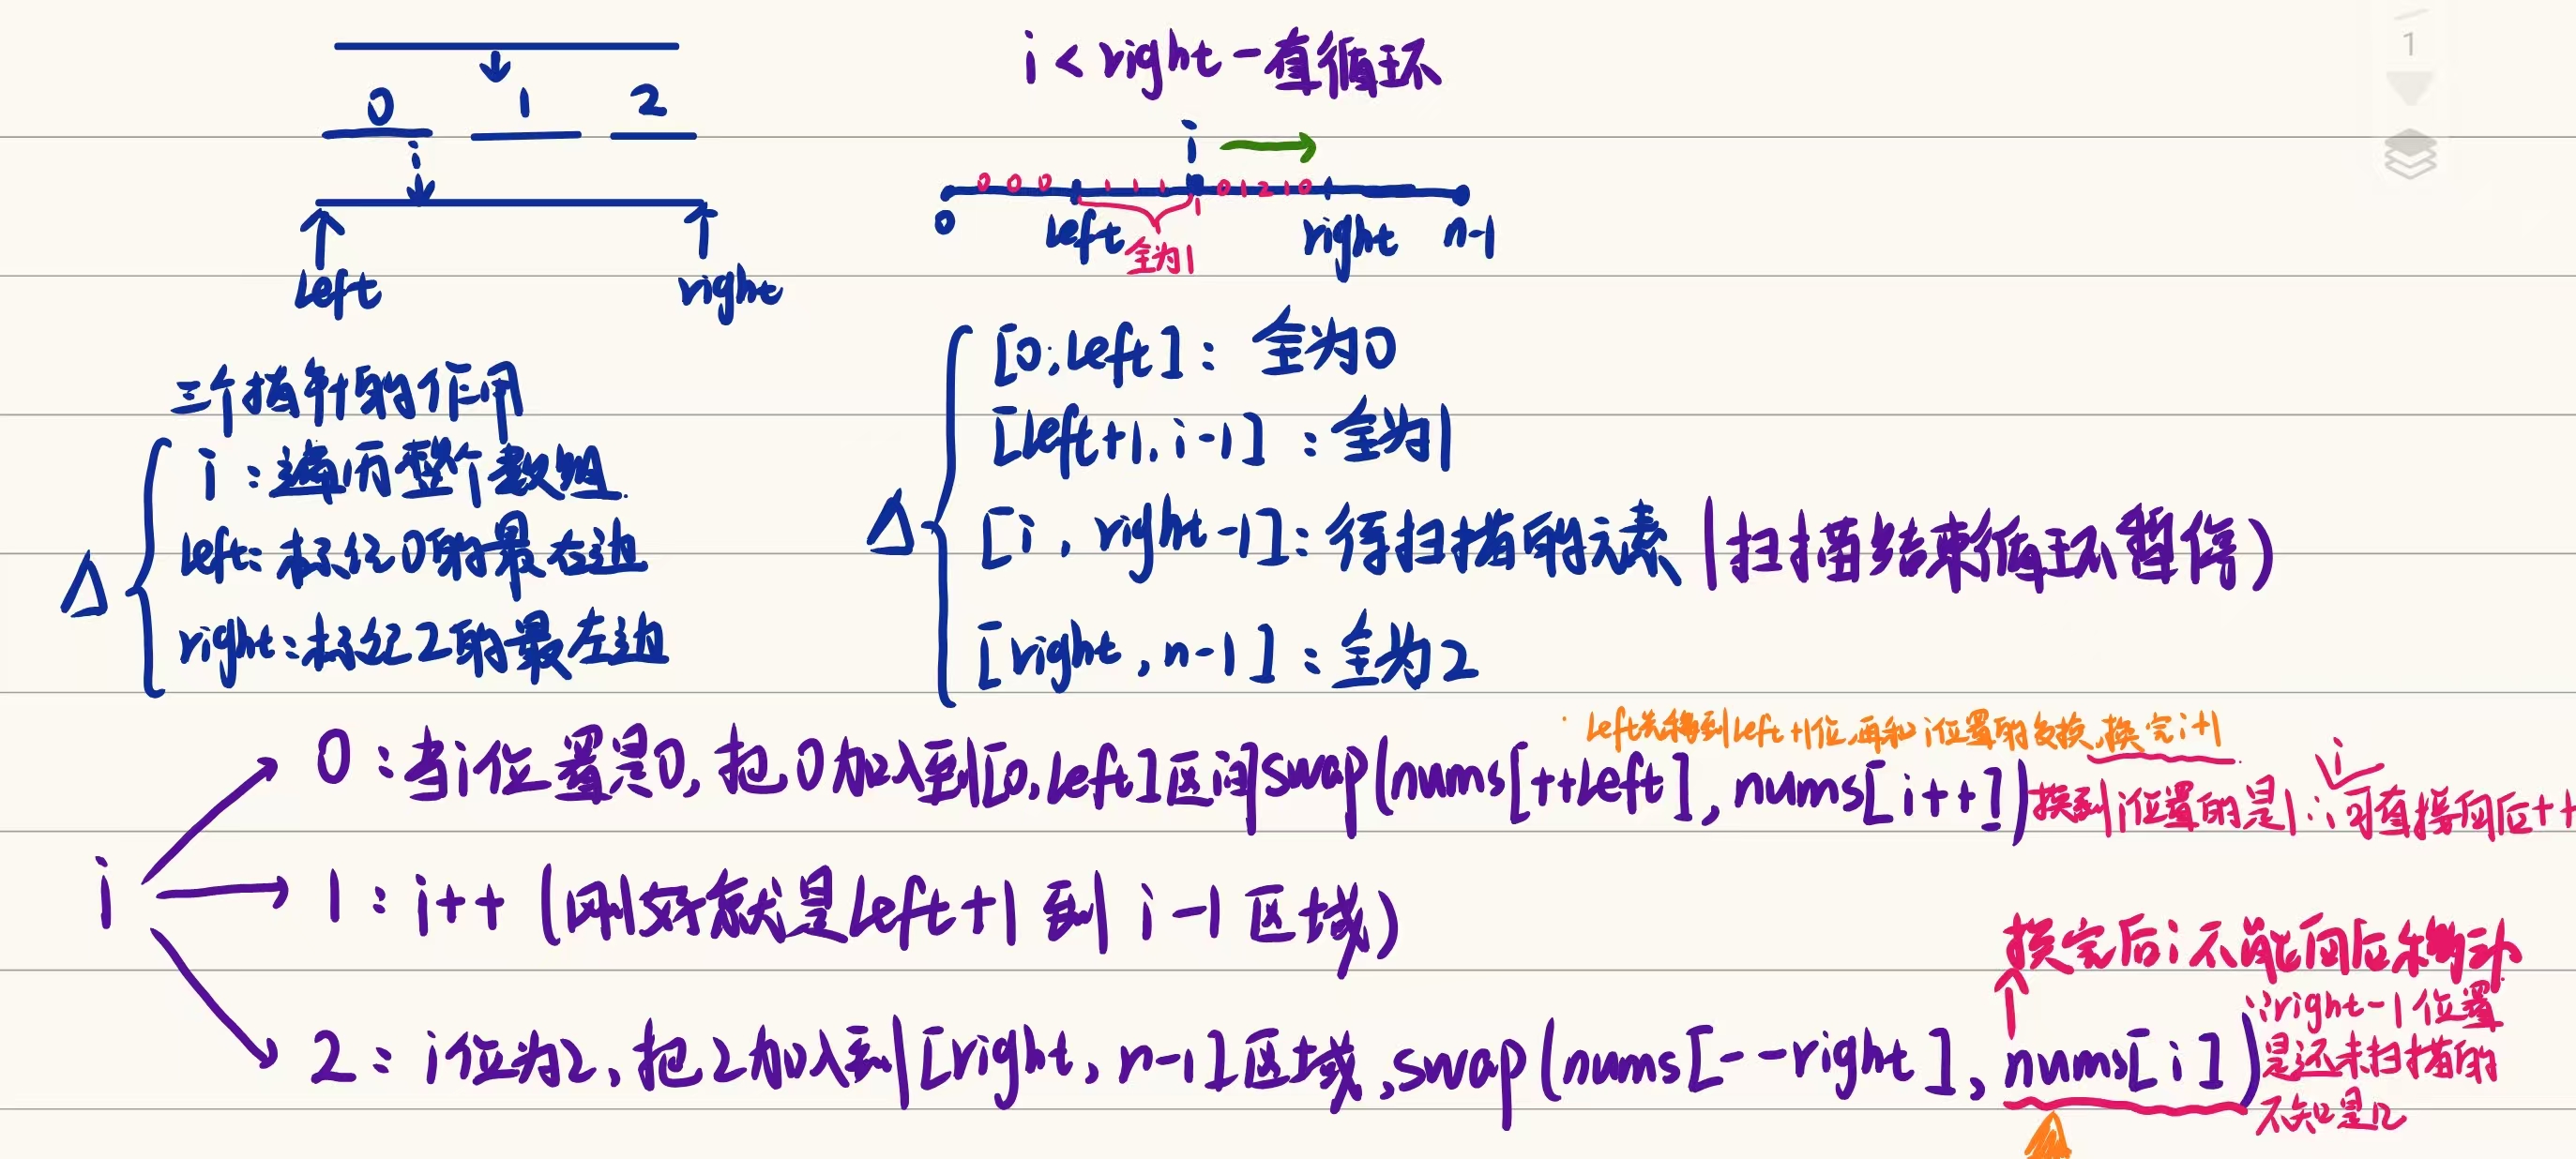 i < right 一直循环
0 1 2
i
0 0 0 1 1 1 0 1 2 1 0
0 left 全为1 right n-1
left right
三个指针的作用
i:遍历整个数组.
left:标记0的最右边
right:标记2的最左边
[0,left]:全为0
[left+1,i-1]:全为1
[i,right-1]:待扫描的元素(扫描结束循环暂停)
[right,n-1]:全为2
left先移到left+1位,再和i位置的交换,换完i+1
i
0:当i位置是0,把0加入到[0,left]区间swap(nums[++left],nums[i++])换到i位置的是1∴i可直接向后++
i
1:i++(刚好就是left+1到i-1区域)
换完后i不能向后移动
2:i位为2,把2加入到[right,n-1]区域,swap(nums[--right],nums[i])
∵right-1位置
是还未扫描的
不知是几
1